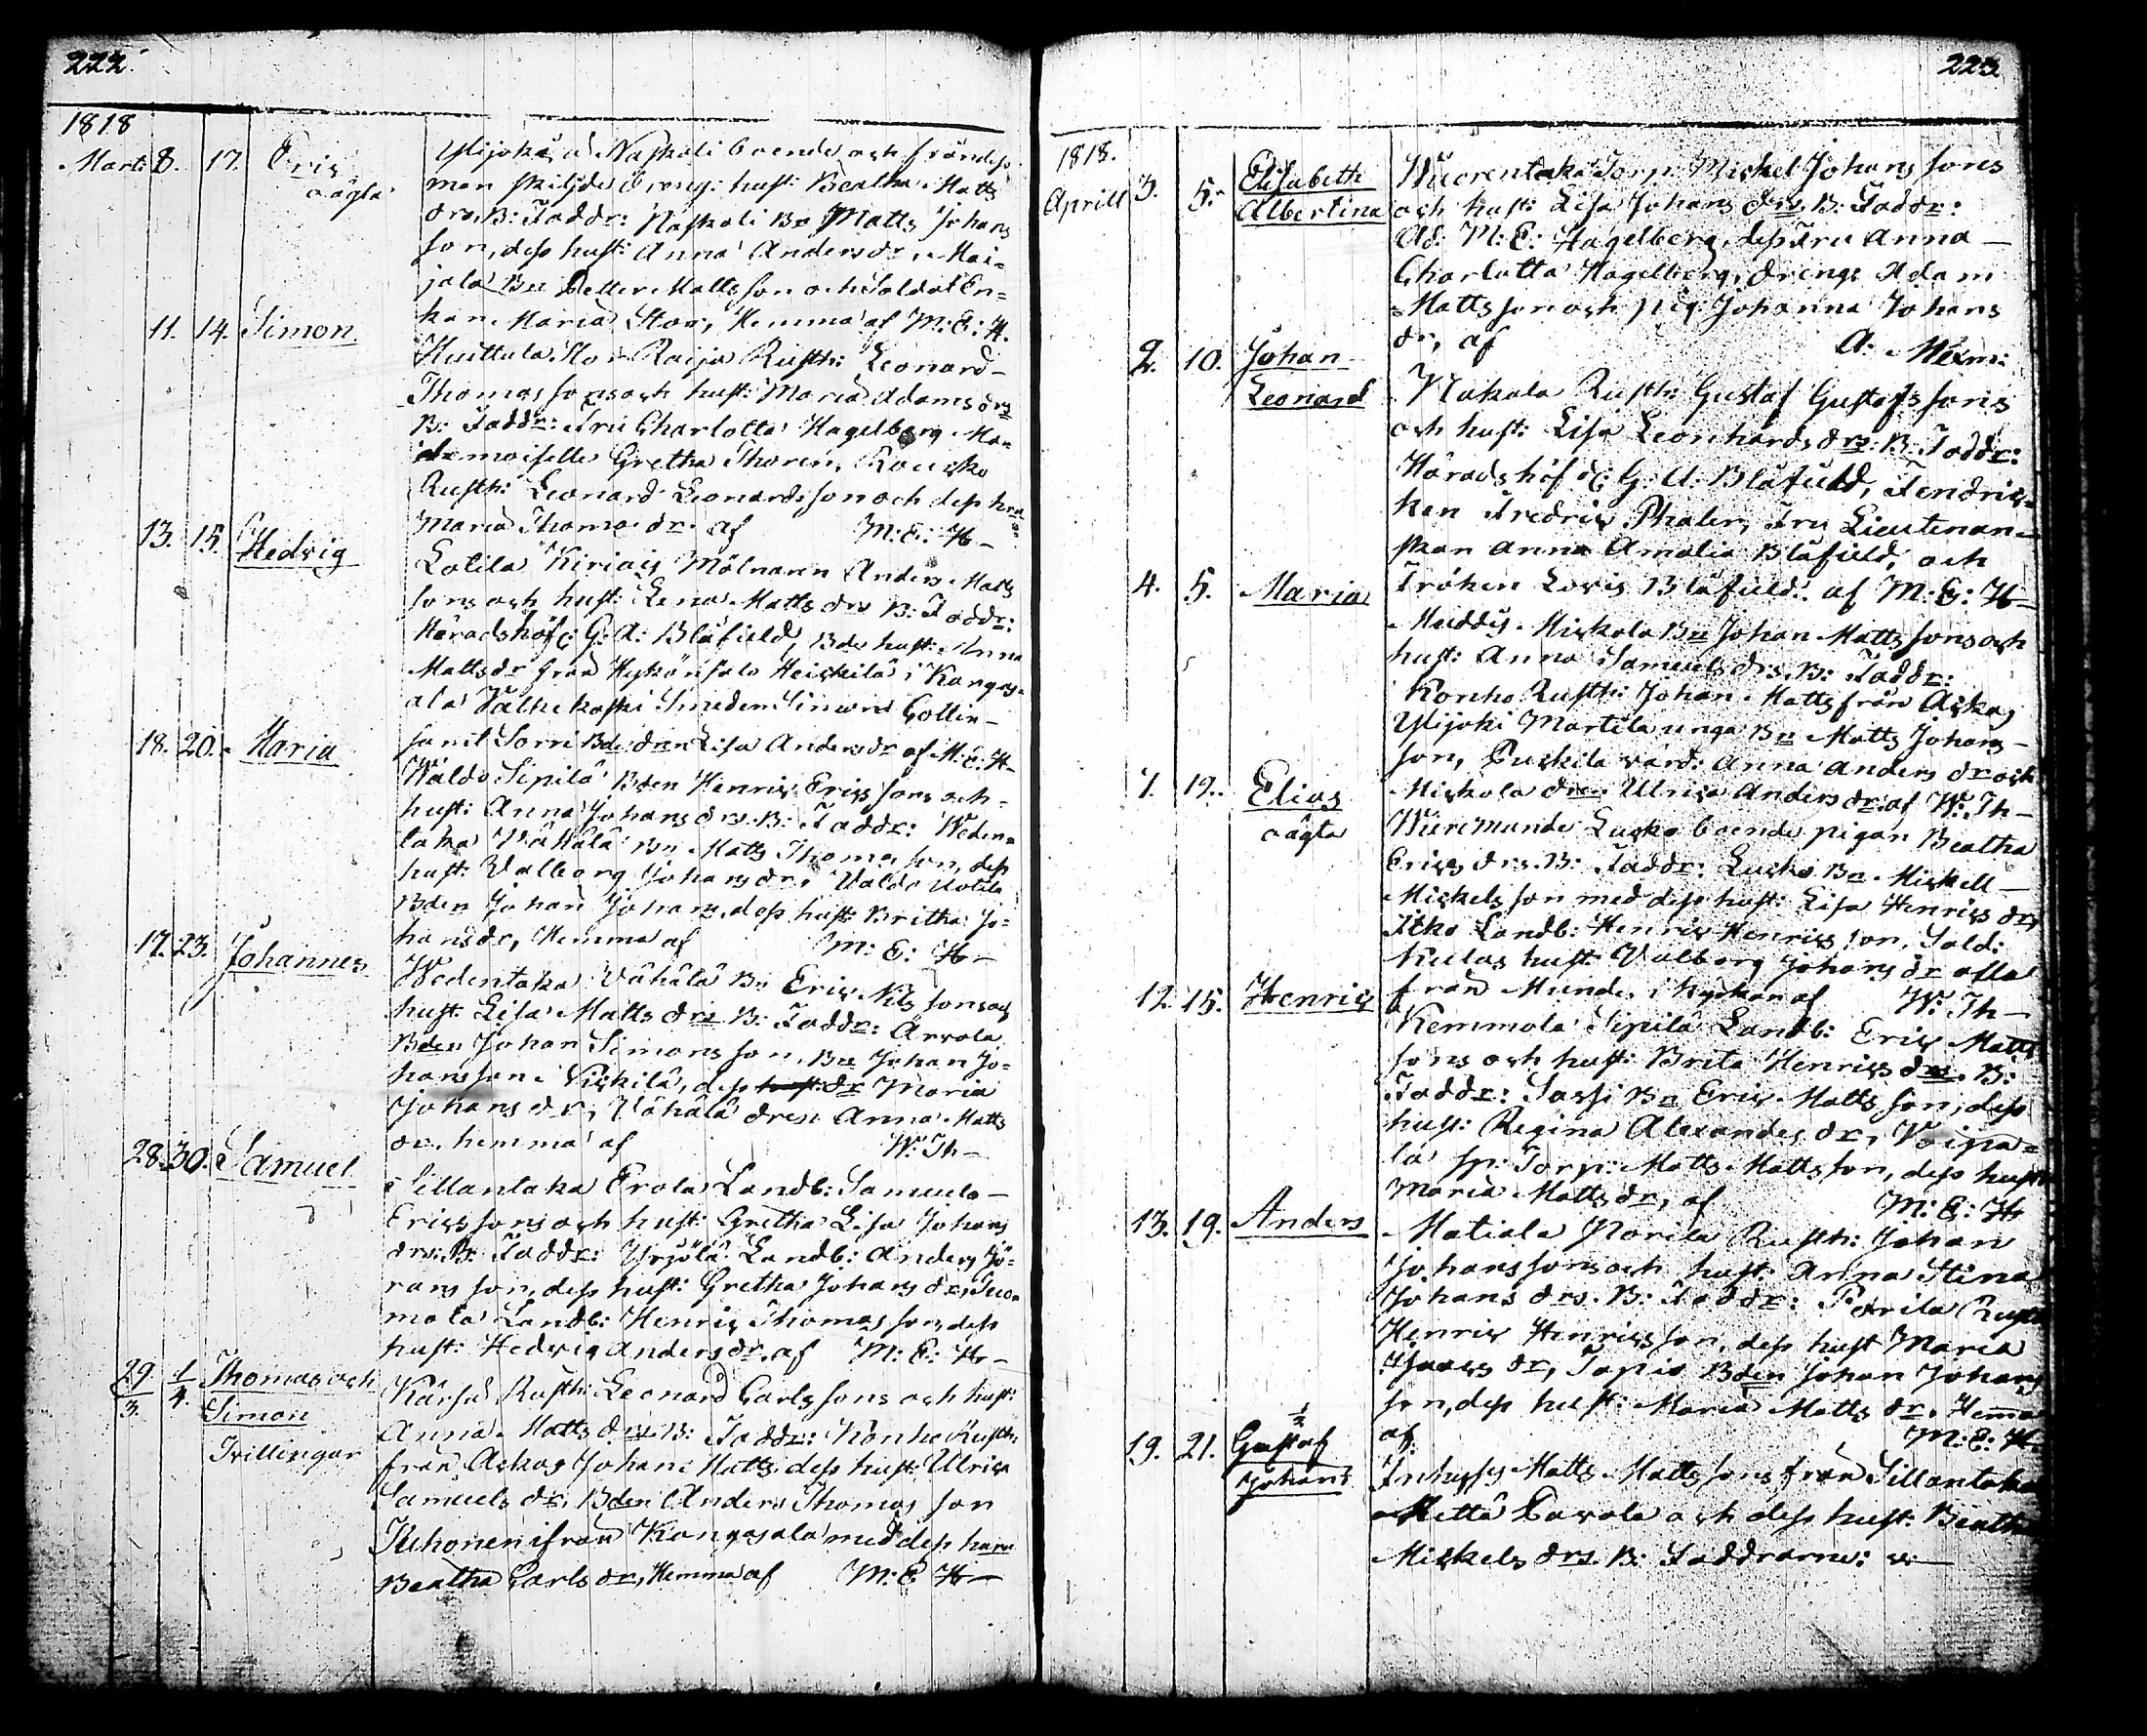 222
1818
Mart: 8. 17. Eric oägta
Ylijoki, Naskali boende och från dess
man skiljde hust: Beatha Matts
drs. B: Faddr: Naskali Bn Matts Johans
son, dess hust: Anna Anders dr, Mai=
jala Bn Petter Mattsson och Soldat En=
kan Maria Stor, Hemma af M: E: H.
11. 14. Simon
Huittula Raija Rusth: Leonard
Thomassons och hust: Maria Adams drs
B: Faddr: Fru Charlotta Hagelberg Ma=
demoiselle Gretha Thoren,
Rusth: Leonard Leonardsson och dess hru
Maria Thomæ dr. af M: E: H
13. 15. Hedvig
Lotila Kiriais Mölnaren Anders Matts
sons och hust: Lena Matts drs B: Faddr:
Häradshöfd: G: A: Blåfield, Bdes hust: Anna
Mattsdr från Heickilä i Kangas=
ala Välkekoski Smeden Simon Gottin
samt Sorri Bdes dren Lisa Andersdr af M: E: H
18. 20. Maria
Waldo Sipilä Bden Henric Ericssons och
hust: Anna Johans drs. B: Faddr: Weden=
taka Vähälä Bn Matts Thomasson, dess
hust: Valborg Johans dr, Valdo Uotila
Bden Johan Johans, dess hust: Britha Jo=
hansdr, Hemma af M: E: H
17. 23. Johannes
Wedentaka Vähälä Bn Eric Nilssons och
hust: Lisa Matts drs B: Faddr: Arvola
Bden Johan Simonsson, Bn Johan Jo=
hansson Pickilä, dess hust: dr Maria
Johans dr, Vähälä dren Anna Matts
dr. hemma af W: Th
28. 30. Samuel
Sillantaka Erola Landb: Samuels
Ericssons och hust: Gretha Lisa Johans
drs. B: Faddr: Yrjölä Landb: Anders Jö=
ransson, dess hust: Gretha Johans dr, Suo=
mala Landb: Henric Thomasson, dess
hust: Hedvig Andersdr, af M: E: H
29/3. 1/4. Thomas och
Simon
Tvillingar
Kärsä Rusth: Leonard Carlssons och hust:
Anna Matts drs. B: Faddr: Konho Rusth:
från Ackas Johan Matts. dess hust: Ulrica
Samuels dr, Bden Anders Thomas son
Kuhonen ifrån Kangasala med dess hru
Beatha Carls dr, Hemma af M: E: H
223
1818.
Aprill 3. 5. Elisabeth
Albertina
Wuorentaka Torp: Mickel Johanssons
och hust: Lisa Johans drs. B: Faddr:
Ad: M: E: Hagelberg, dess Fru Anna
Charlotta Hagelberg, dreng: Adam
Mattsson och pig: Johanna Johans
dr, af A:
2. 10. Johan
Leonard
Nakala Rusth: Gustaf Gustafssons
och hust: Lisa Leonhards drs. B: Faddr:
Häradshöfd: G: A: Blåfield, Fendric=
han Fredric Phaler, Fru Lieutenan=
skan Anna Amalia Blåfield, och
Fröken Lovis Blåfield. af M: E: H
4. 5. Maria
Mickola Bn Johan Mattssons och
hust: Anna Samuels drs. B: Faddr:
Konho Rusth: Johan Matts från Ackas
Ylijoki Martila unga Bn Matts Johans
son, Puckila värd: Anna Anders dr och
Mickola dren Ulrica Anders dr. af W: Th
7. 19. Elias
oägta
Wuremunde Lucko boende pigan Beatha
Erics drs. B: Faddr: Lucko Bn Mickell
Mickelsson med dess hust: Lisa Henrics dr,
Itko Landb: Henric Henricsson, Sold:
hust: Valborg Johans dr alla
från Munde, i kyrkan af W: Th
12. 15. Henric
Kemmola Sipilä Landb: Eric Matts
sons och hust: Brita Henrics drs. B:
Faddr: Sassi Bn Eric Mattsson, dess
hust: Regina Alexanders dr, Voipa=
la sp: Torp: Matts Mattsson, dess hust:
Maria Matts dr, af M: E: H
13. 19. Anders
Matiala Norila Rusth: Johan
Johanssons och hust: Anna Stina
Johans drs. B: Faddr: Perila Rusth
Henric Henricsson, dess hust Maria
Isaacs dr, Tapio Bden Johan Johans
son, dess hust: Maria Matts dr. Hemma
af M: E: H.
19. 21. Gustaf
Johan
Inhyses Matts Mattssons från Sillantaka
Mettä Pavola och dess hust: Beatha
Mickels drs. B: Faddrarne: